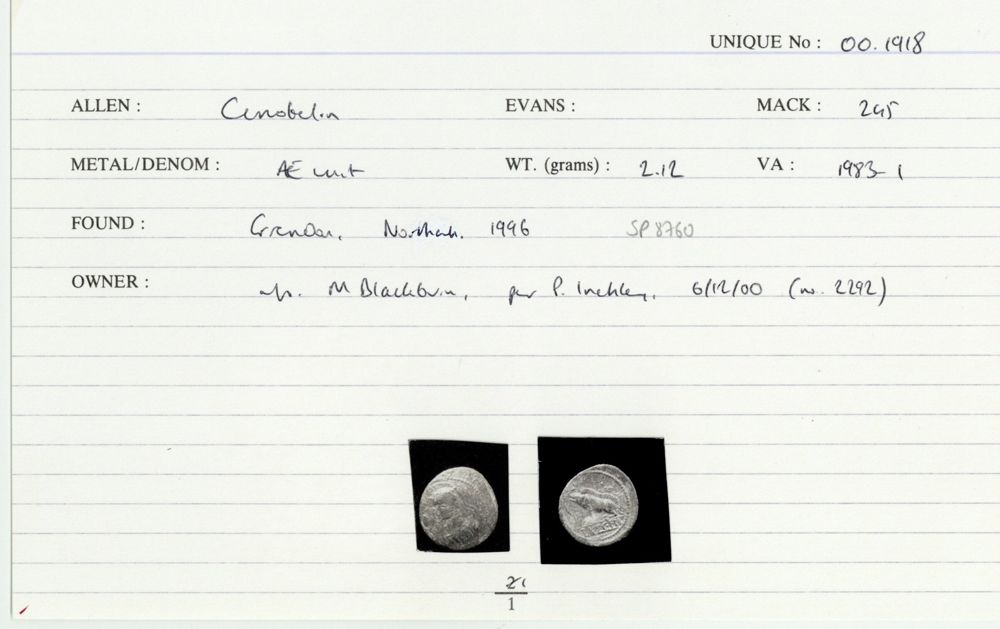 UNIQUE No : 00.1918
ALLEN : Cunobelin EVANS : MACK : 245
METAL/DENOM : AE unit WT. (grams) : 2.12 VA : 1983-1
FOUND : Grendon, Northah. 1996 SP 8760
OWNER : M Blackburn, per P. Inchley, 6/12/00 (no. 2292)
1